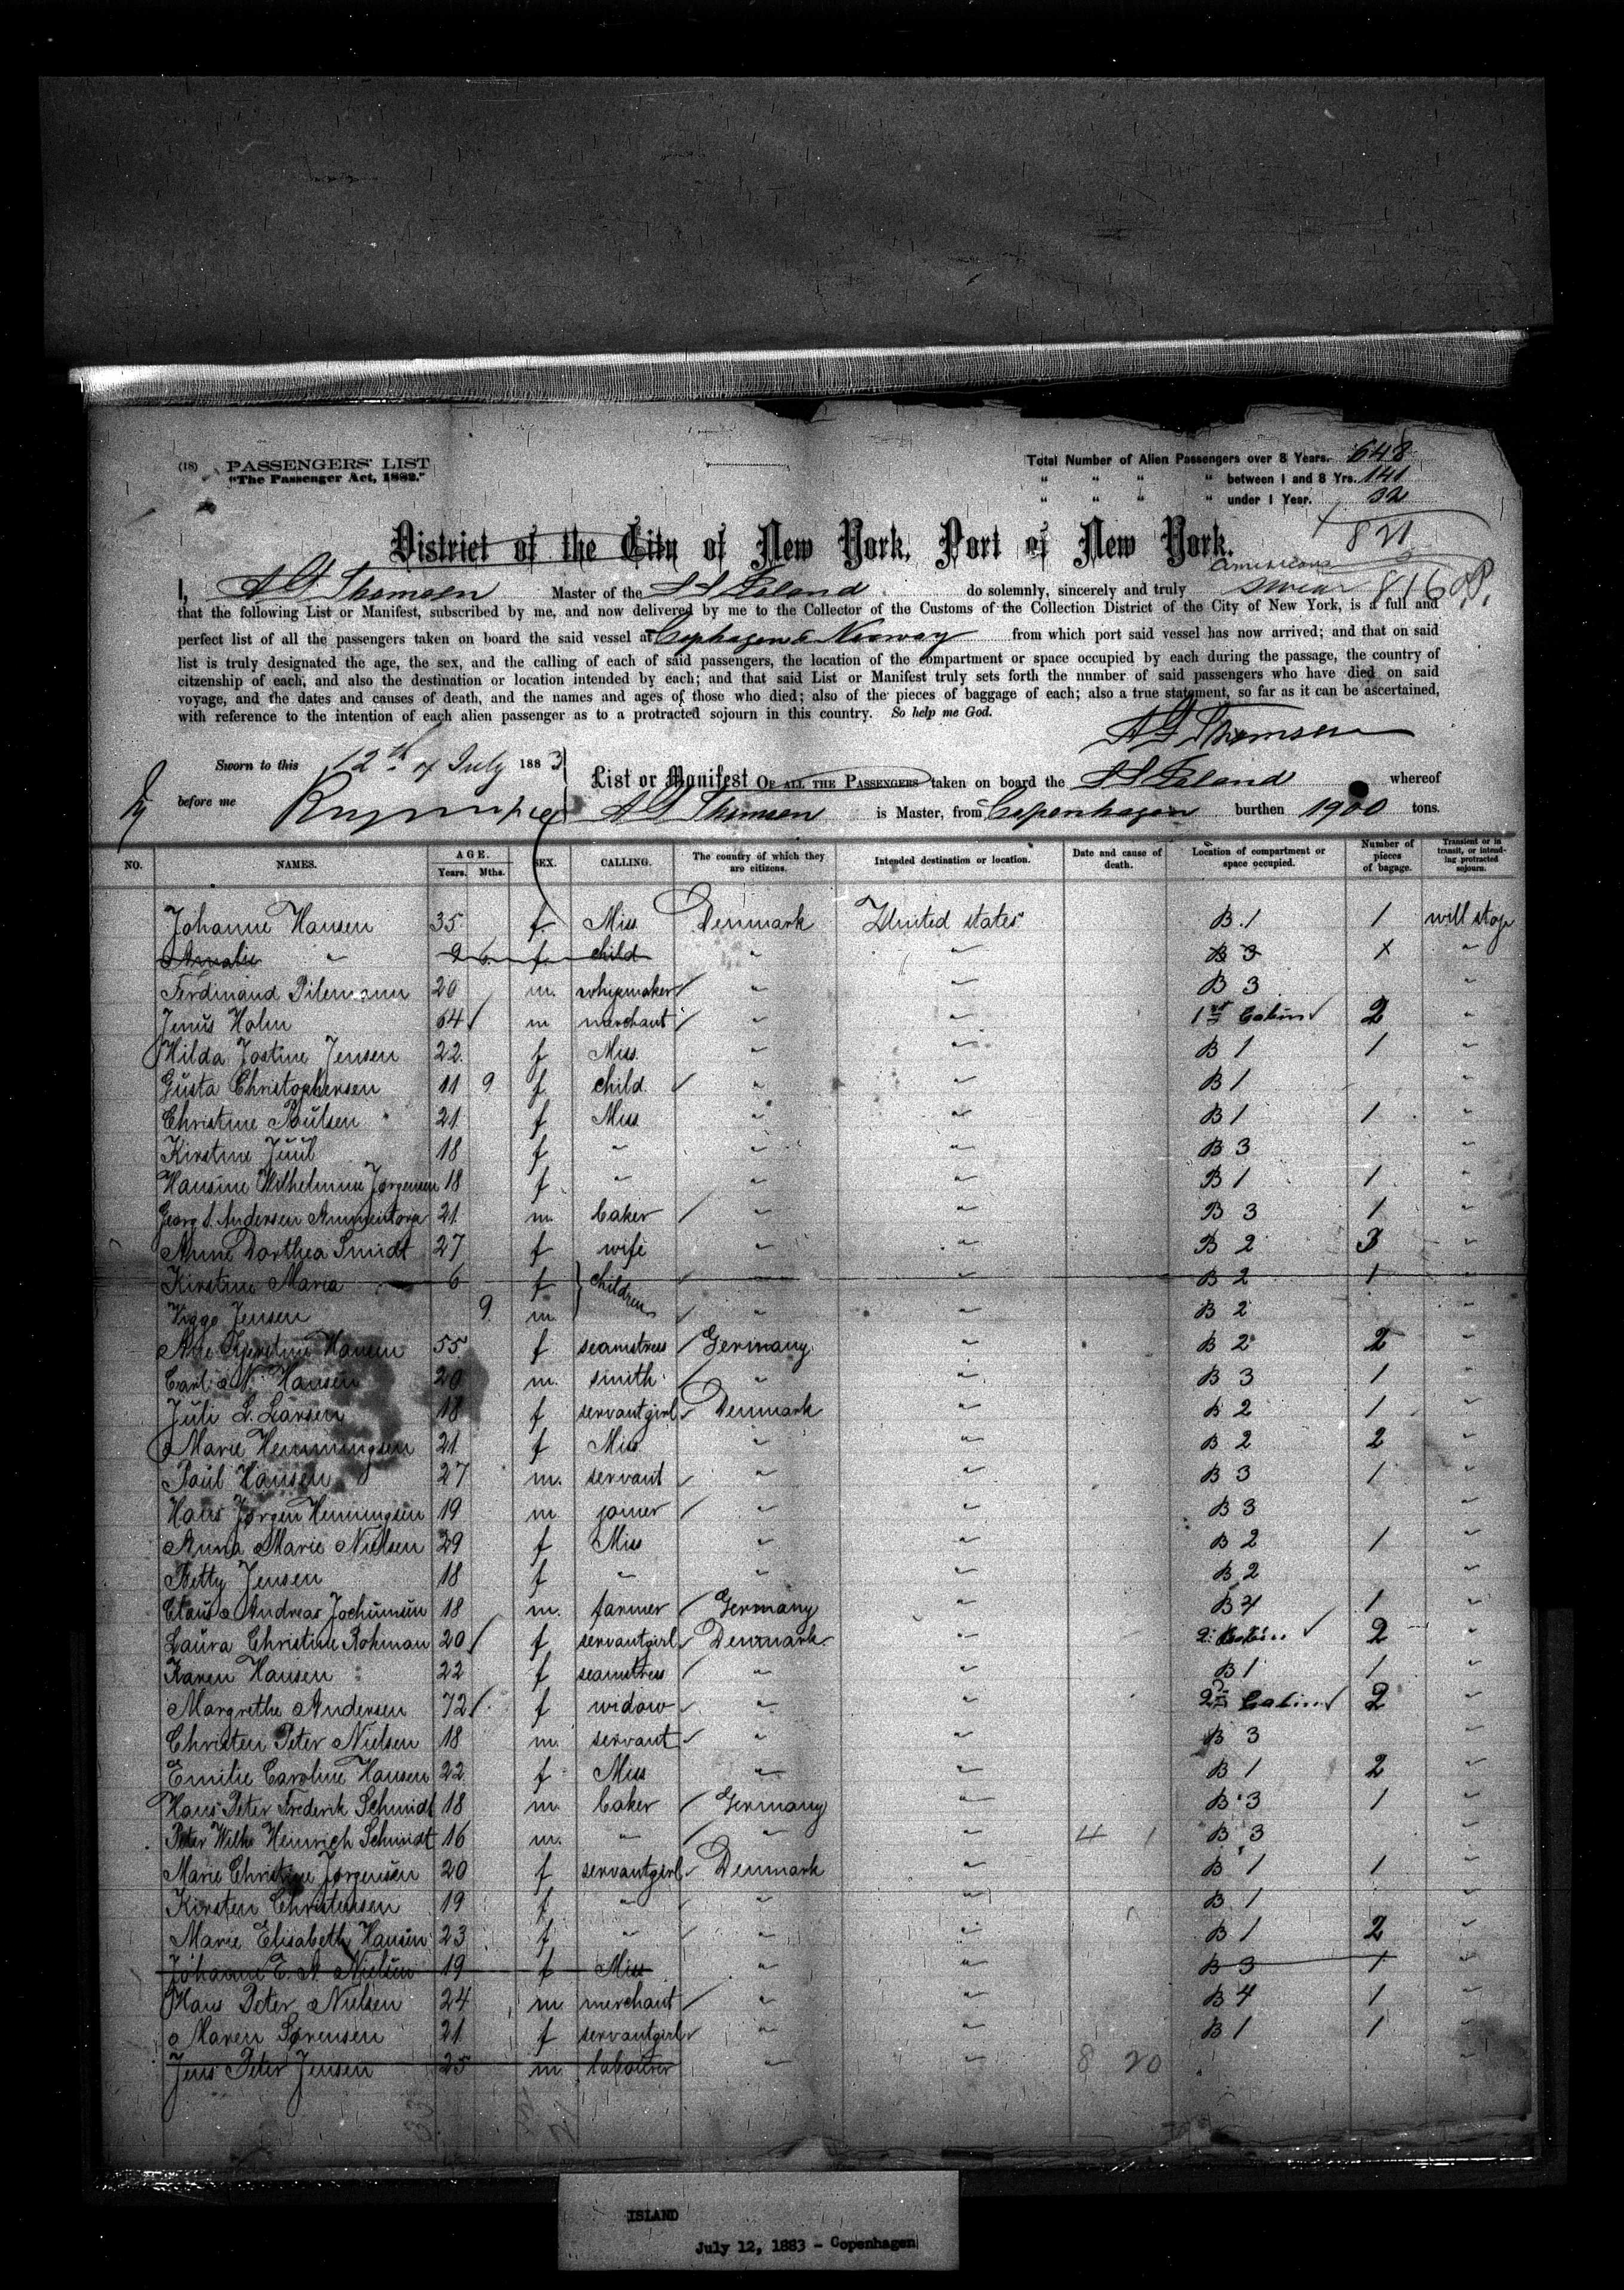 (18) PASSENGERS' LIST
"The Passenger Act, 1882."
Total Number of Alien Passengers over 8 Years. 648
" " " " between 1 and 8 Yrs. 141
" " " " under 1 Year. 32
821
District of the City of New York, Port of New York.
americans
I, A G Thomsen Master of the S S Island do solemnly, sincerely and truly swear 816
that the following List or Manifest, subscribed by me, and now delivered by me to the Collector of the Customs of the Collection District of the City of New York, is a full and
perfect list of all the passengers taken on board the said vessel at Cophagen & Norway from which port said vessel has now arrived; and that on said
list is truly designated the age, the sex, and the calling of each of said passengers, the location of the compartment or space occupied by each during the passage, the country of
citzenship of each, and also the destination or location intended by each; and that said List or Manifest truly sets forth the number of said passengers who have died on said
voyage, and the dates and causes of death, and the names and ages of those who died; also of the pieces of baggage of each; also a true statement, so far as it can be ascertained,
with reference to the intention of each alien passenger as to a protracted sojourn in this country. So help me God.
A G Thomsen
Sworn to this 12th of July 1883
before me
List or Manifest OF ALL THE PASSENGERS taken on board the S S Island whereof
A G Thomsen is Master, from Copenhagen burthen 1900 tons.
NO. NAMES. AGE. Years. Mths. SEX. CALLING. The country of which they are citizens. Intended destination or location. Date and cause of death. Location of compartment or space occupied. Number of pieces of bagage. Transient or in transit, or intending protracted sojourn.
Johanne Hansen 35 f Miss Denmark United states B.1 1 will stop
Amalie " 9 6 f child " " B 3 x "
Ferdinand Pilemann 20 m. whipmaker " " B 3 "
Jenus Holm 64 m merchant " " 1st Cabin 2 "
Hilda Jostine Jensen 22 f Miss " " B 1 1 "
Gusta Christophersen 11 9 f child " " B 1 "
Christine Poulsen 21 f Miss " " B 1 1 "
Kirstine Juul 18 f " " " B 3 "
Hansine Wilhelmine Jørgensen 18 f " " " B 1 1 "
Georg S. Andersen Ammentorp 21 m. baker " " B 3 1 "
Anne Dorthea Smidt 27 f wife " " B 2 3 "
Kirstine Maria 6 f children " " B 2 1 "
Viggo Jensen 9 m. " " B 2 "
Ane Kjerstine Hansen 55 f seamstress Germany " B 2 2 "
Carl N. Hansen 20 m. smith " " B 3 1 "
Juli L. Larsen 18 f servantgirl Denmark " B 2 1 "
Marie Hemmingsen 21 f Miss " " B 2 2 "
Paul Hansen 27 m. servant " " B 3 1 "
Hans Jørgen Hemmingsen 19 m. joiner " " B 3 "
Anna Marie Nielsen 29 f Miss " " B 2 1 "
Betty Jensen 18 f " " " B 2 "
Claus Andreas Jochumsen 18 m. farmer Germany " B 4 1 "
Laura Christine Rohman 20 f servantgirl Denmark " 2. Cabin 2 "
Karen Hansen 22 f seamstress " " B 1 1 "
Margrethe Andersen 72 f widow " " 2nd Cabin 2 "
Christen Peter Nielsen 18 m. servant " " B 3 "
Emilie Caroline Hansen 22 f Miss " " B 1 2 "
Hans Peter Frederik Schmidt 18 m. baker Germany " B 3 1 "
Peter Wilh. Heinrich Schmidt 16 m. " " " 4 1 B 3 "
Marie Christine Jørgensen 20 f servantgirl Denmark " B 1 1 "
Kirsten Christensen 19 f " " " B 1 "
Marie Elisabeth Hansen 23 f " " " B 1 2 "
Johanne E. A. Nielsen 19 f Miss " " B 3 1 "
Hans Peter Nielsen 24 m merchant " " B 4 1 "
Maren Sørensen 21 f servantgirl " " B 1 1 "
Jens Peter Jensen 25 m labourer " " 8 20 "
ISLAND
July 12, 1883 - Copenhagen